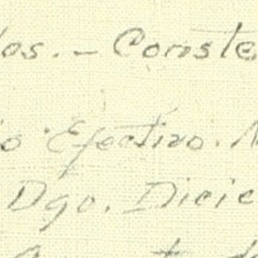 os. - Conste
o Efectivo.
Dgo. Dicie